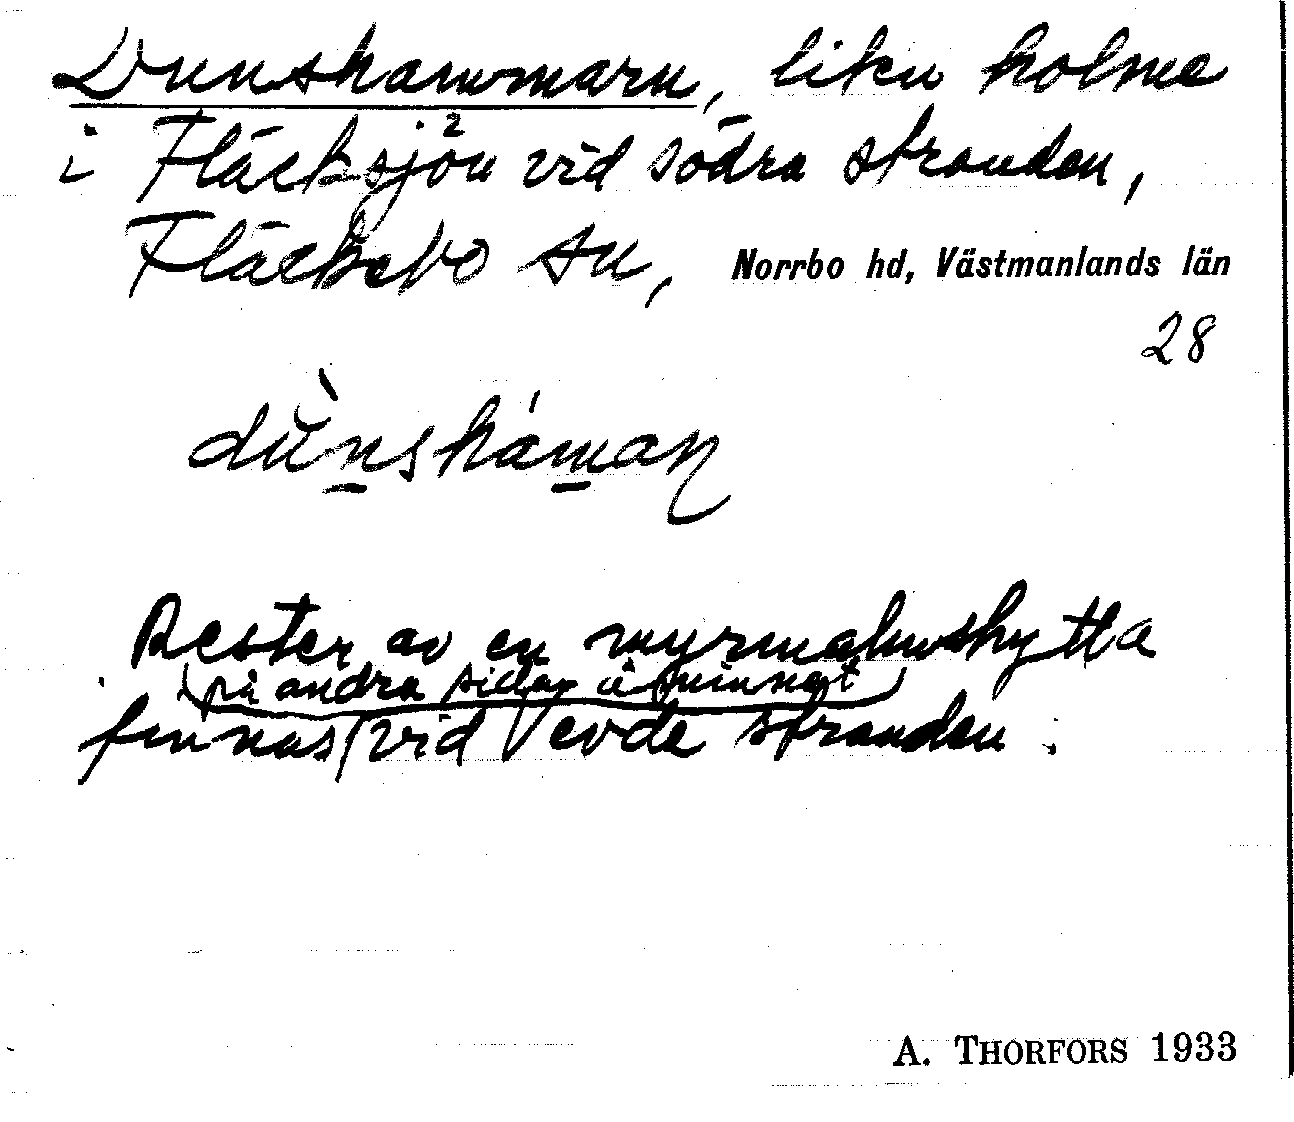 Dunshammarn, liten holme
i Fläcksjön 2 vid södra stranden,
Fläckebo sn, Norrbo hd, Västmanlands län
28
dùnshámaṇ
Rester av en myrmalmshytta
på andra sidan
finnas vid stranden.
A. THORFORS 1933